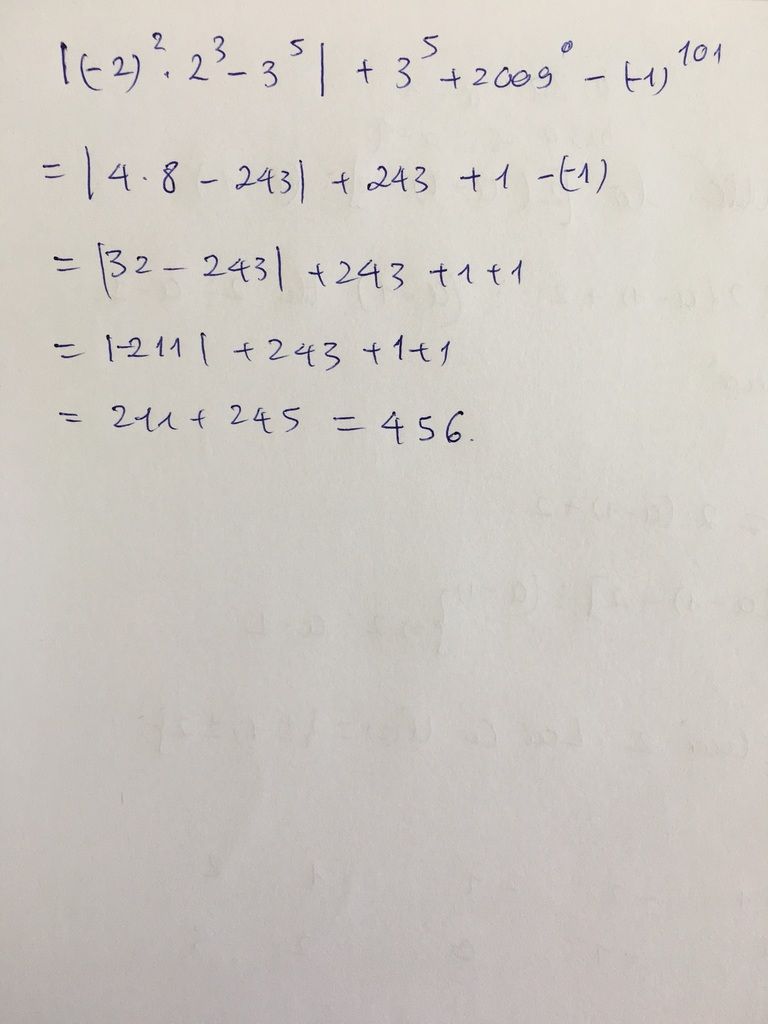 |(-2)² . 2³ - 3⁵| + 3⁵ + 2009⁰ - (-1)¹⁰¹
= |4 . 8 - 243| + 243 + 1 - (-1)
= |32 - 243| + 243 + 1 + 1
= |-211| + 243 + 1 + 1
= 211 + 245 = 456.